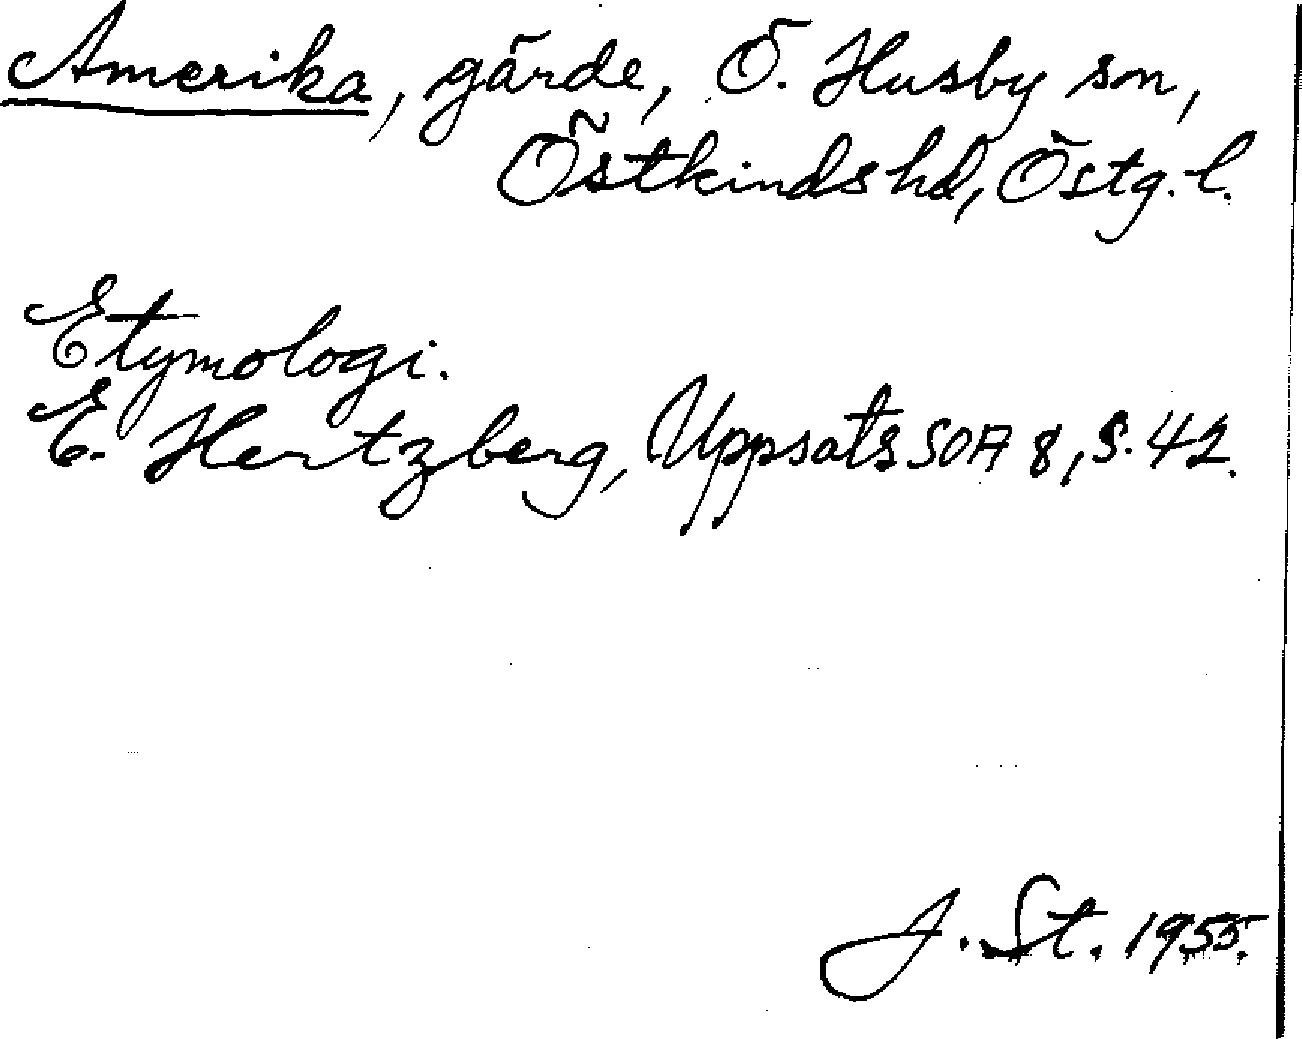 Amerika, gärde, Ö. Husby sn,
Östkinds hd, Östg. l.
Etymologi.
E. Hertzberg, Uppsats SOA 8, s. 42.
J. St. 1955.